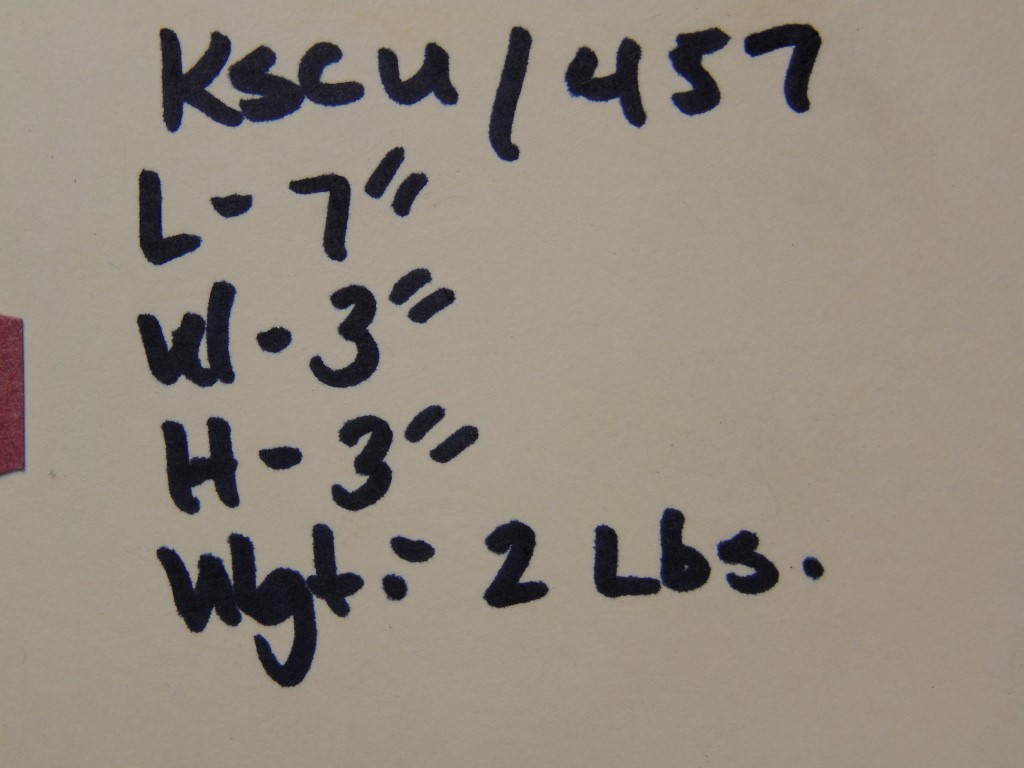 KSCU/457
L- 7"
W- 3"
H- 3"
Wgt:- 2 Lbs.